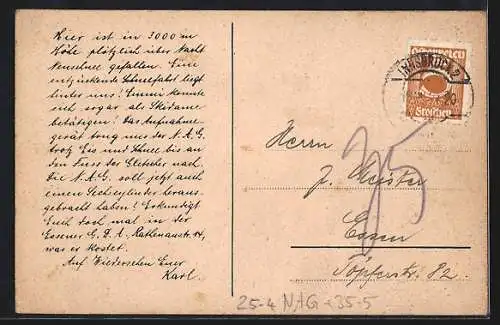 Hier ist in 3000 m
Höhe plötzlich über Nacht
Neuschnee gefallen. Eine
entzückende Schneefahrt liegt
hinter uns! Emmi konnte
sich sogar als Skidame
betätigen! Das Aufnahme-
gerät trug uns der N.A.G.
trotz Eis und Schnee bis an
den Fuss der Gletscher nach.
Die N.A.G. soll jetzt auch
einen Sechszylinder heraus-
gebracht haben! Erkundigt
Euch doch mal in der
Essener G.D.A. Rathenaustr. 14,
was er kostet.
Auf Wiedersehen Euer
Karl.
INNSBRUCK 2
Groschen
Herrn
J.
Essen
Töpferstr. 82.
25-4 NAG 35-5